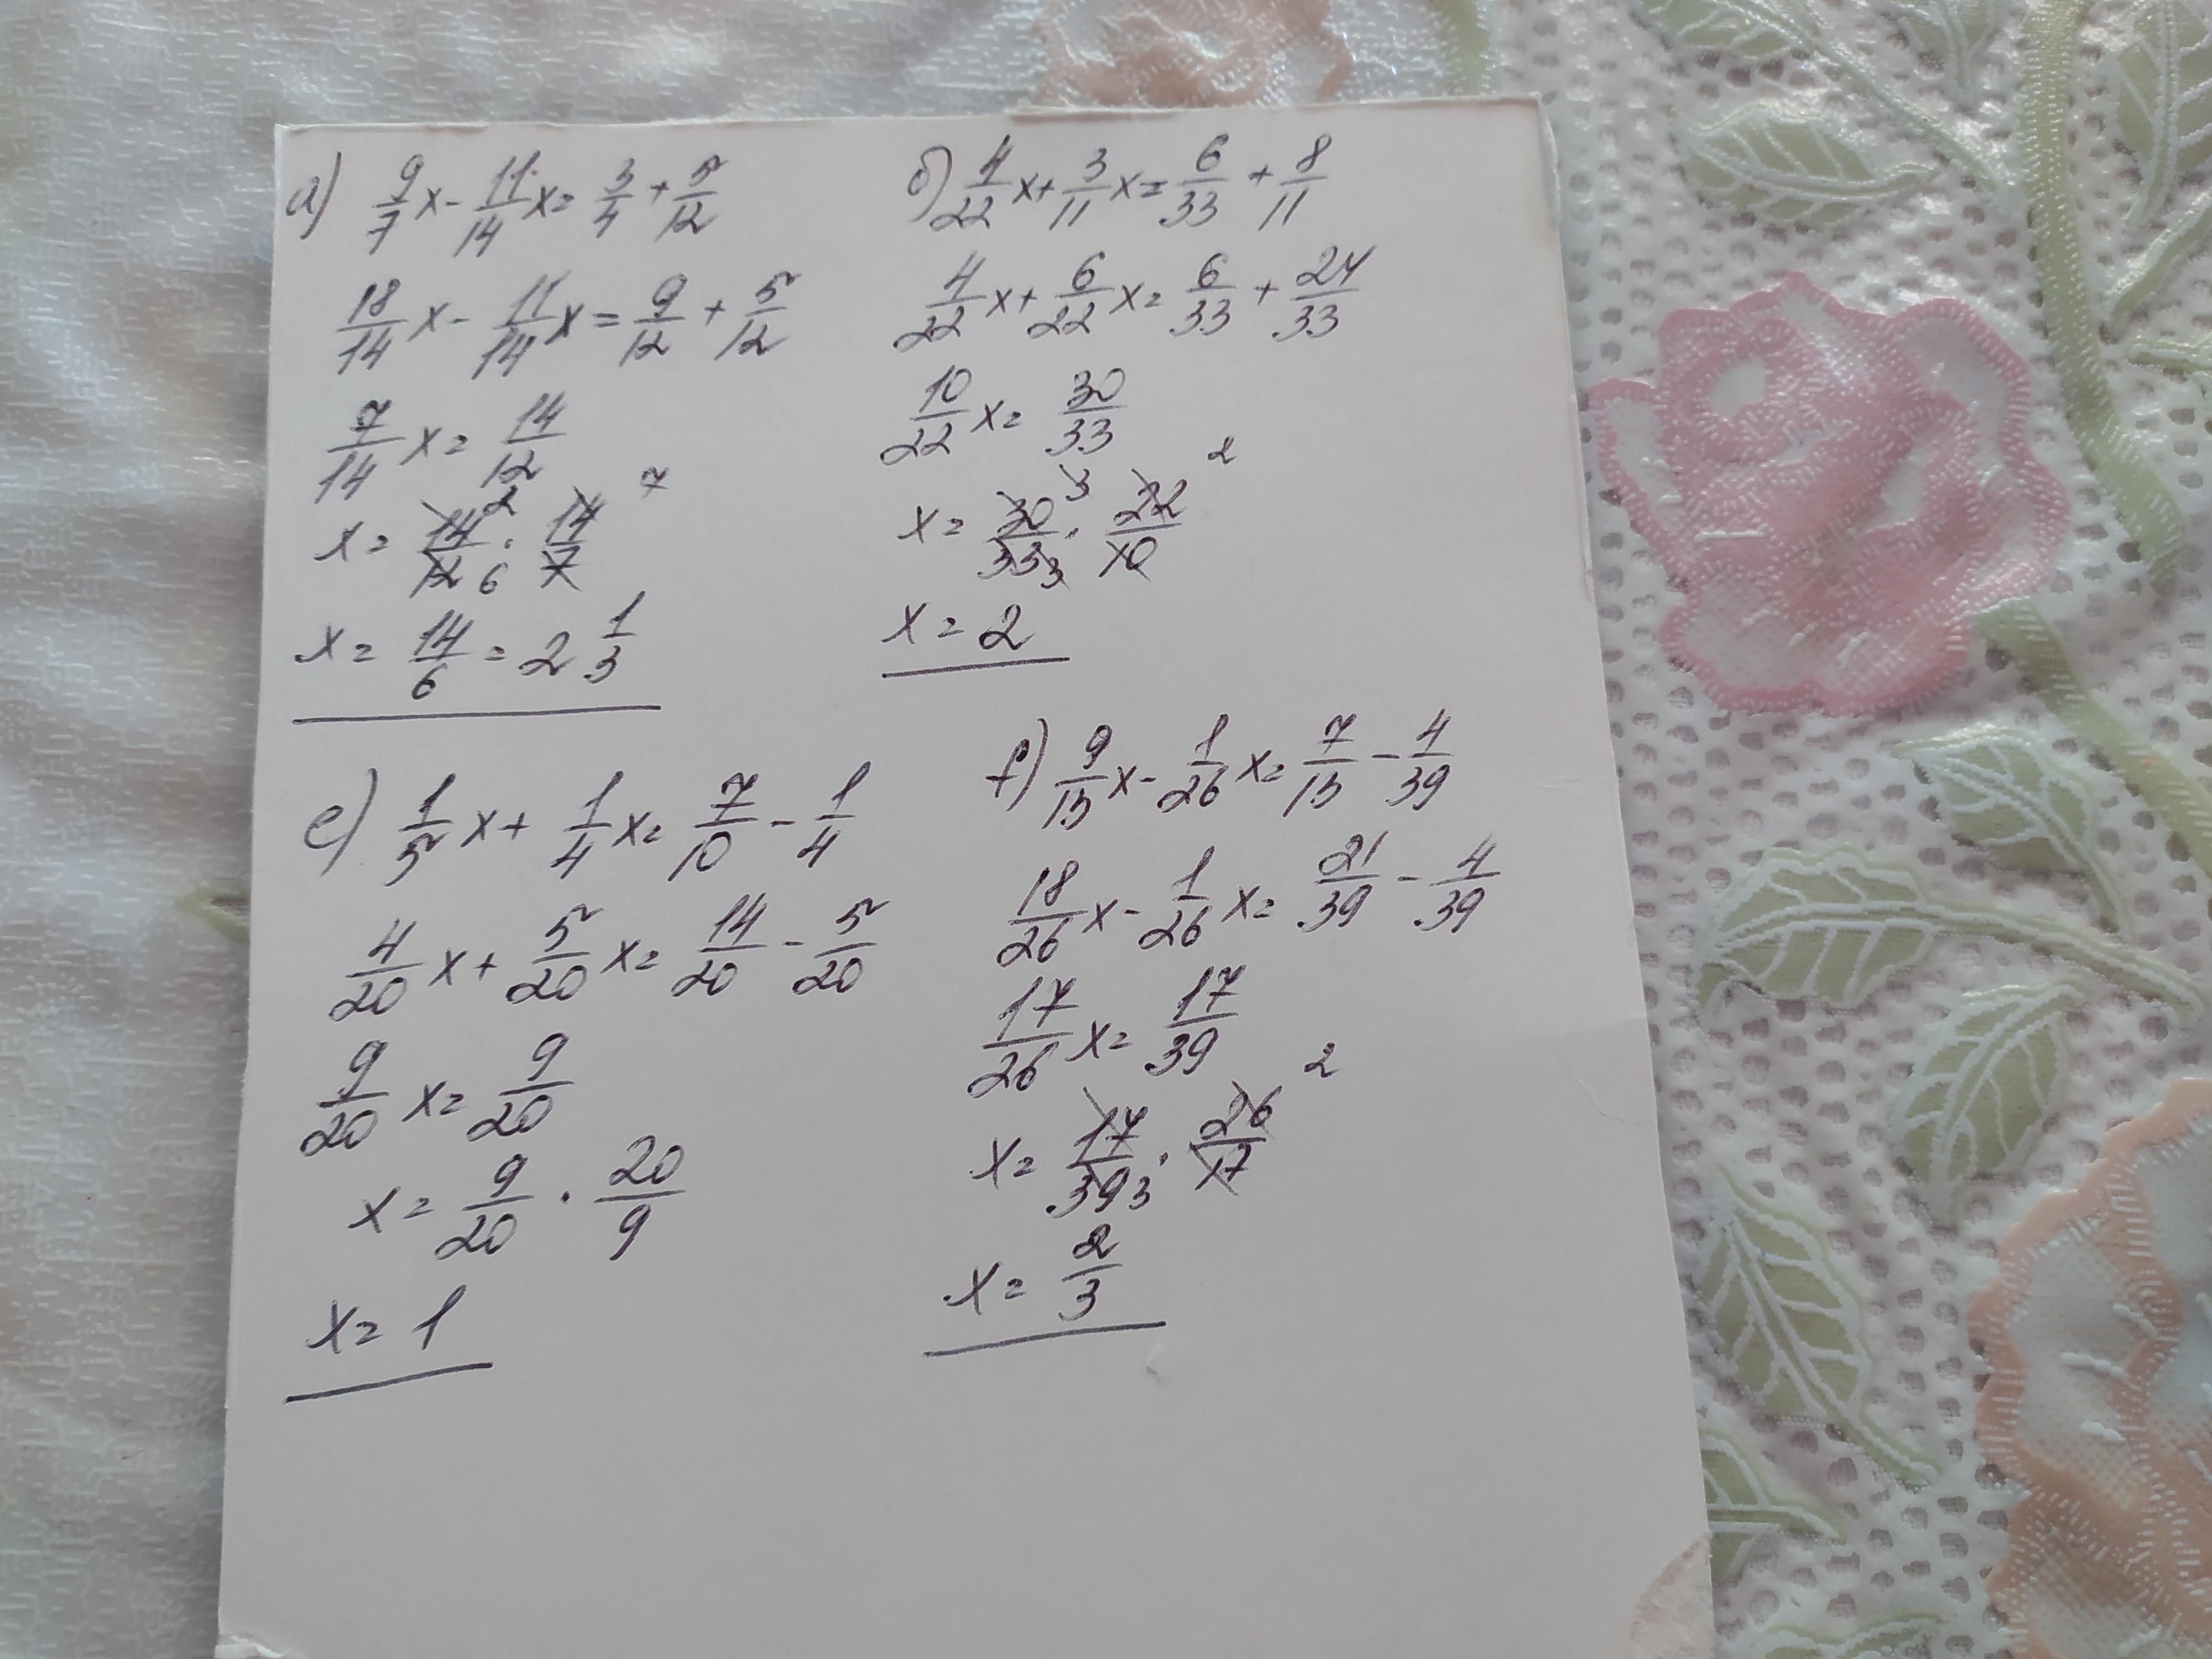 а) 9/7 x - 11/14 x = 3/4 + 5/12
18/14 x - 11/14 x = 9/12 + 5/12
7/14 x = 14/12
x = 14/12 · 14/7 2 6 7
x = 14/6 = 2 1/3
б) 4/22 x + 3/11 x = 6/33 + 8/11
4/22 x + 6/22 x = 6/33 + 24/33
10/22 x = 30/33
x = 30/33 · 22/10 3 3 2
x = 2
e) 1/5 x + 1/4 x = 7/10 - 1/4
4/20 x + 5/20 x = 14/20 - 5/20
9/20 x = 9/20
x = 9/20 · 20/9
x = 1
f) 9/13 x - 1/26 x = 7/13 - 4/39
18/26 x - 1/26 x = 21/39 - 4/39
17/26 x = 17/39
x = 17/39 · 26/17 3 2
x = 2/3